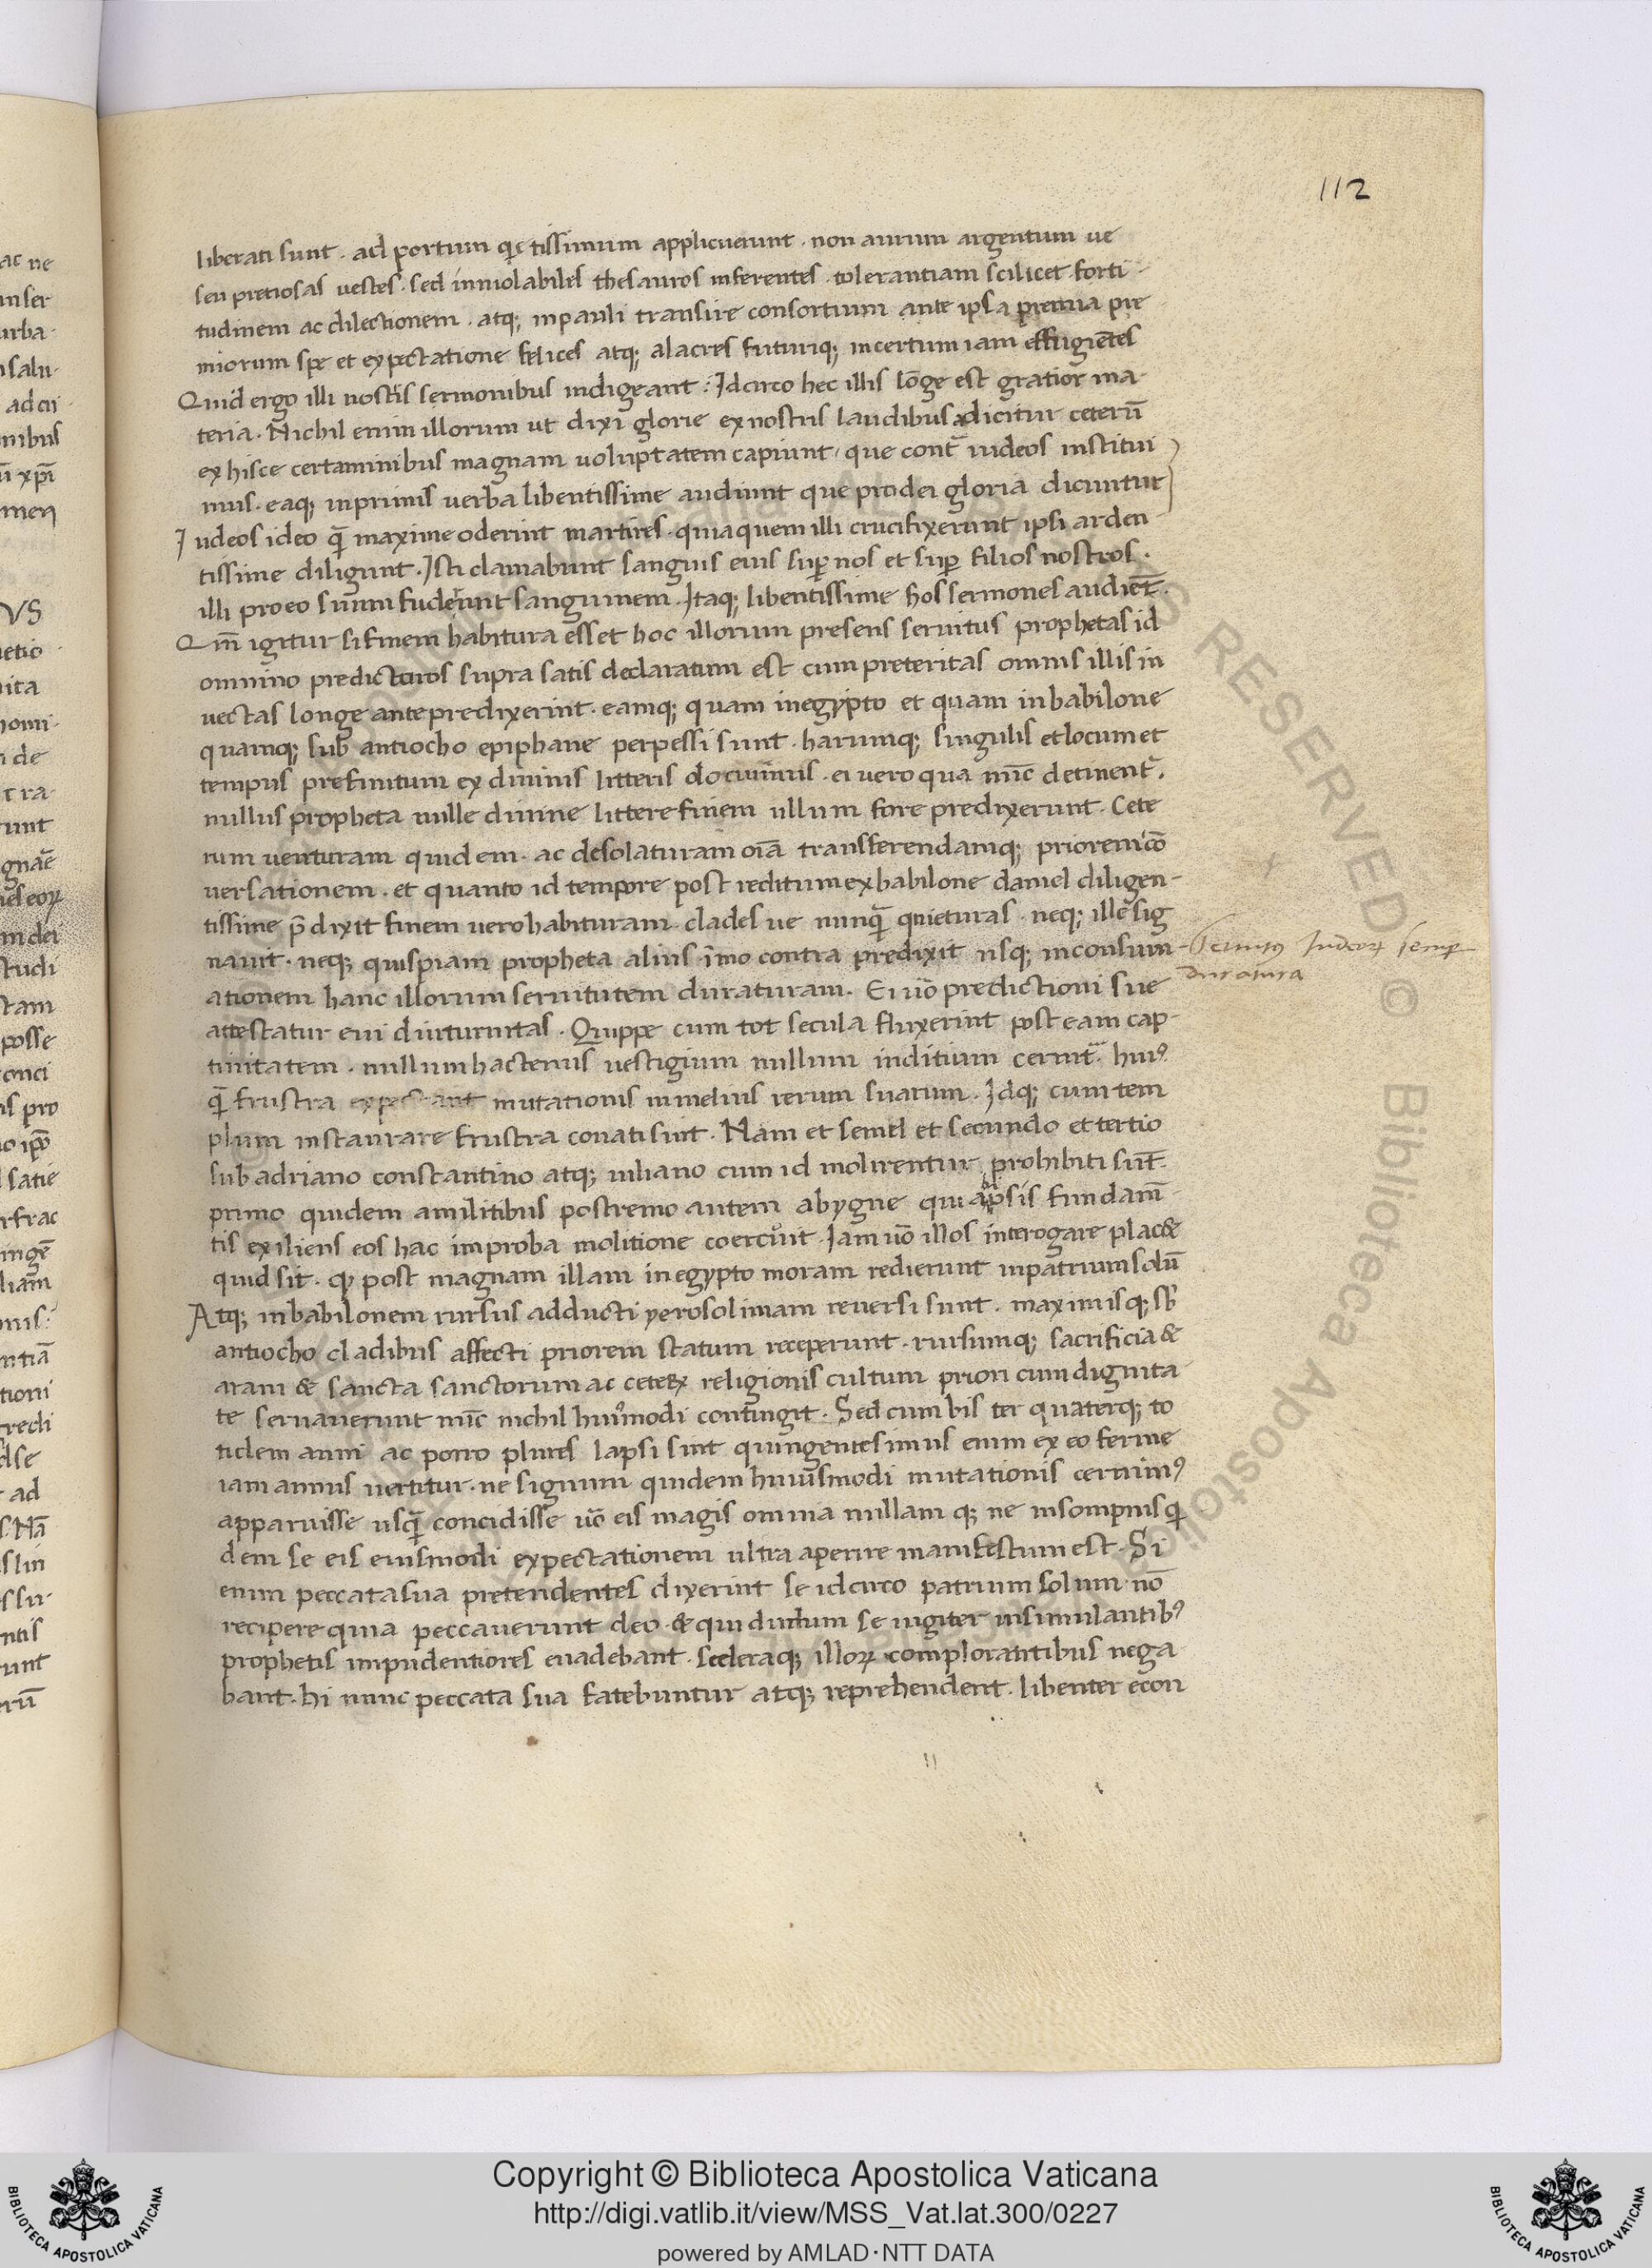 112
liberati sunt · ad portum q̄etissimum applicuerunt · non aurum argentum ue
seu pretiosas uestes · sed inuiolabiles thesauros inferentes · tolerantiam scilicet forti-
tudinem ac dilectionem · atq; in pauli transire consortium ante ipsa premia pre
miorum spe et expectatione felices atq; alacres futuriq; incertum iam effugiētes
Quid ergo illi nostris sermonibus indigeant : Idcirco hec illis lōge est gratior ma-
teria · Nichil enim illorum ut dixi glorie ex nostris laudibus adicitur ceterū
ex hisce certaminibus magnam uoluptatem capiunt / que cont̄ iudeos institui
mus · eaq; inprimis uerba libentissime audiunt que pro dei gloria dicuntur
Iudeos ideo q̄ maxime oderint martires · quia quem illi crucifixerunt ipsi arden-
tissime diligunt · Isti clamabunt sanguis eius suꝑ nos et suꝑ filios nostros ·
illi pro eo suum fuderunt sanguinem · Itaq; libentissime hos sermones audiēt ·
Qm̄ igitur si finem habitura esset hoc illorum presens seruitus prophetas id
omnino predicturos supra satis declaratum est cum preteritas omnis illis in
uectas longe ante predixerint · eamq; quam in egypto et quam in babilone
quamq; sub antiocho epiphane perpessi sunt · harumq; singulis et locum et
tempus prefinitum ex diuinis litteris docuimus · ei uero qua nūc detinent̄ ·
nullus propheta nulle diuine littere finem ullum fore predixerunt · Cete
rum uenturam quidem · ac desolaturam oīa transferendamq; priorem cō
uersationem · et quanto id tempore post reditum ex babilone daniel diligen-
tissime p̄dixit finem uero habituram · clades ue nunq̄ quieturas · neq; ille sig
nauit · neq; quispiam propheta alius īmo contra predixit usq; in consum-
Seruitus Iudeoꝝ semꝑ
duratura
ationem hanc illorum seruitutem duraturam · Ei uō predictioni sue
attestatur eui diuturnitas · Quippe cum tot secula fluxerint post eam cap-
tiuitatem · nullum hactenus uestigium nullum inditium cernit̄ · huiꝰ
q̄ frustra expectant mutationis in melius rerum suarum · Idq; cum tem
plum instaurare frustra conati sint · Nam et semel et secundo et tertio
sub adriano constantino atq; iuliano cum id molirentur prohibiti sūt ·
primo quidem a militibus postremo autem ab ygne qui ab ipsis fundam̄
tis exiliens eos hac improba molitione coercuit · Iam uō illos interogare plac&
quid sit · ꝙ post magnam illam in egypto moram redierunt in patrium solū
Atq; in babilonem rursus adducti yerosolimam reuersi sunt · maximisq; sb̄
antiocho cladibus affecti priorem statum receperunt · rursumq; sacrificia &
aram & sancta sanctorum ac ceteꝝ religionis cultum priori cum dignita
te seruauerunt nūc nichil huiꝰmodi contingit · Sed cum bis ter quaterq; to
tidem anni ac porro plures lapsi sint quingentesimus enim ex eo ferme
iam annus uertitur · ne signum quidem huiusmodi mutationis cernimꝰ
apparuisse usq̄ concidisse uō eis magis omnia nullam q; ne in sompnis q̄
dem se eis eiusmodi expectationem ultra aperire manifestum est · Si
enim peccata sua pretendentes dixerint se idcirco patrium solum nō
recipere quia peccauerunt deo · & qui dudum se iugiter insimulantibꝰ
prophetis impudentiores euadebant · sceleraq; illoꝝ complorantibus nega
bant · hi nunc peccata sua fatebuntur atq; reprehendent · libenter econ
Copyright © Biblioteca Apostolica Vaticana
http://digi.vatlib.it/view/MSS_Vat.lat.300/0227
powered by AMLAD·NTT DATA
BIBLIOTECA APOSTOLICA VATICANA
BIBLIOTECA APOSTOLICA VATICANA